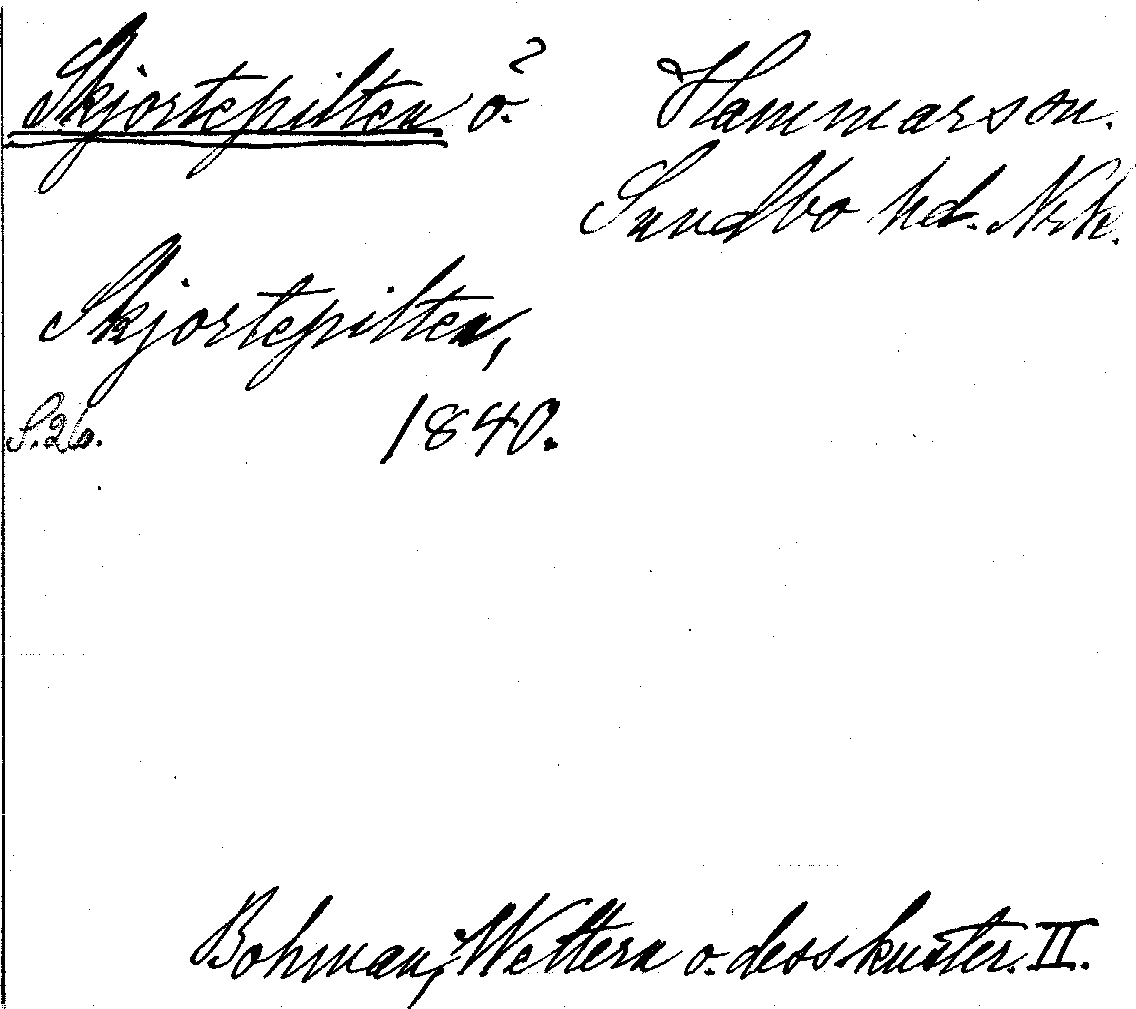 Skjortepilten ö.? Hammar sn.
Sundbo hd. Nrk.
Skjortepilten,
S. 26. 1840.
Bohman, Wettern o. dess kuster. II.